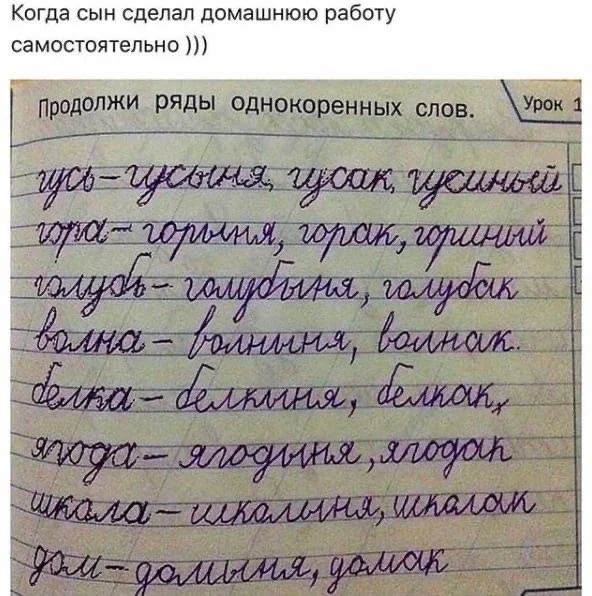 Когда сын сделал домашнюю работу
самостоятельно )))
Продолжи ряды однокоренных слов.
Урок 1
гусь – гусыня, гусак, гусиный
гора – горыня, горак, гориный
голубь – голубыня, голубак
волна – волныня, волнак.
белка – белкыня, белкак,
ягода – ягодыня, ягодак
школа – школыня, школак
дом – домыня, домак